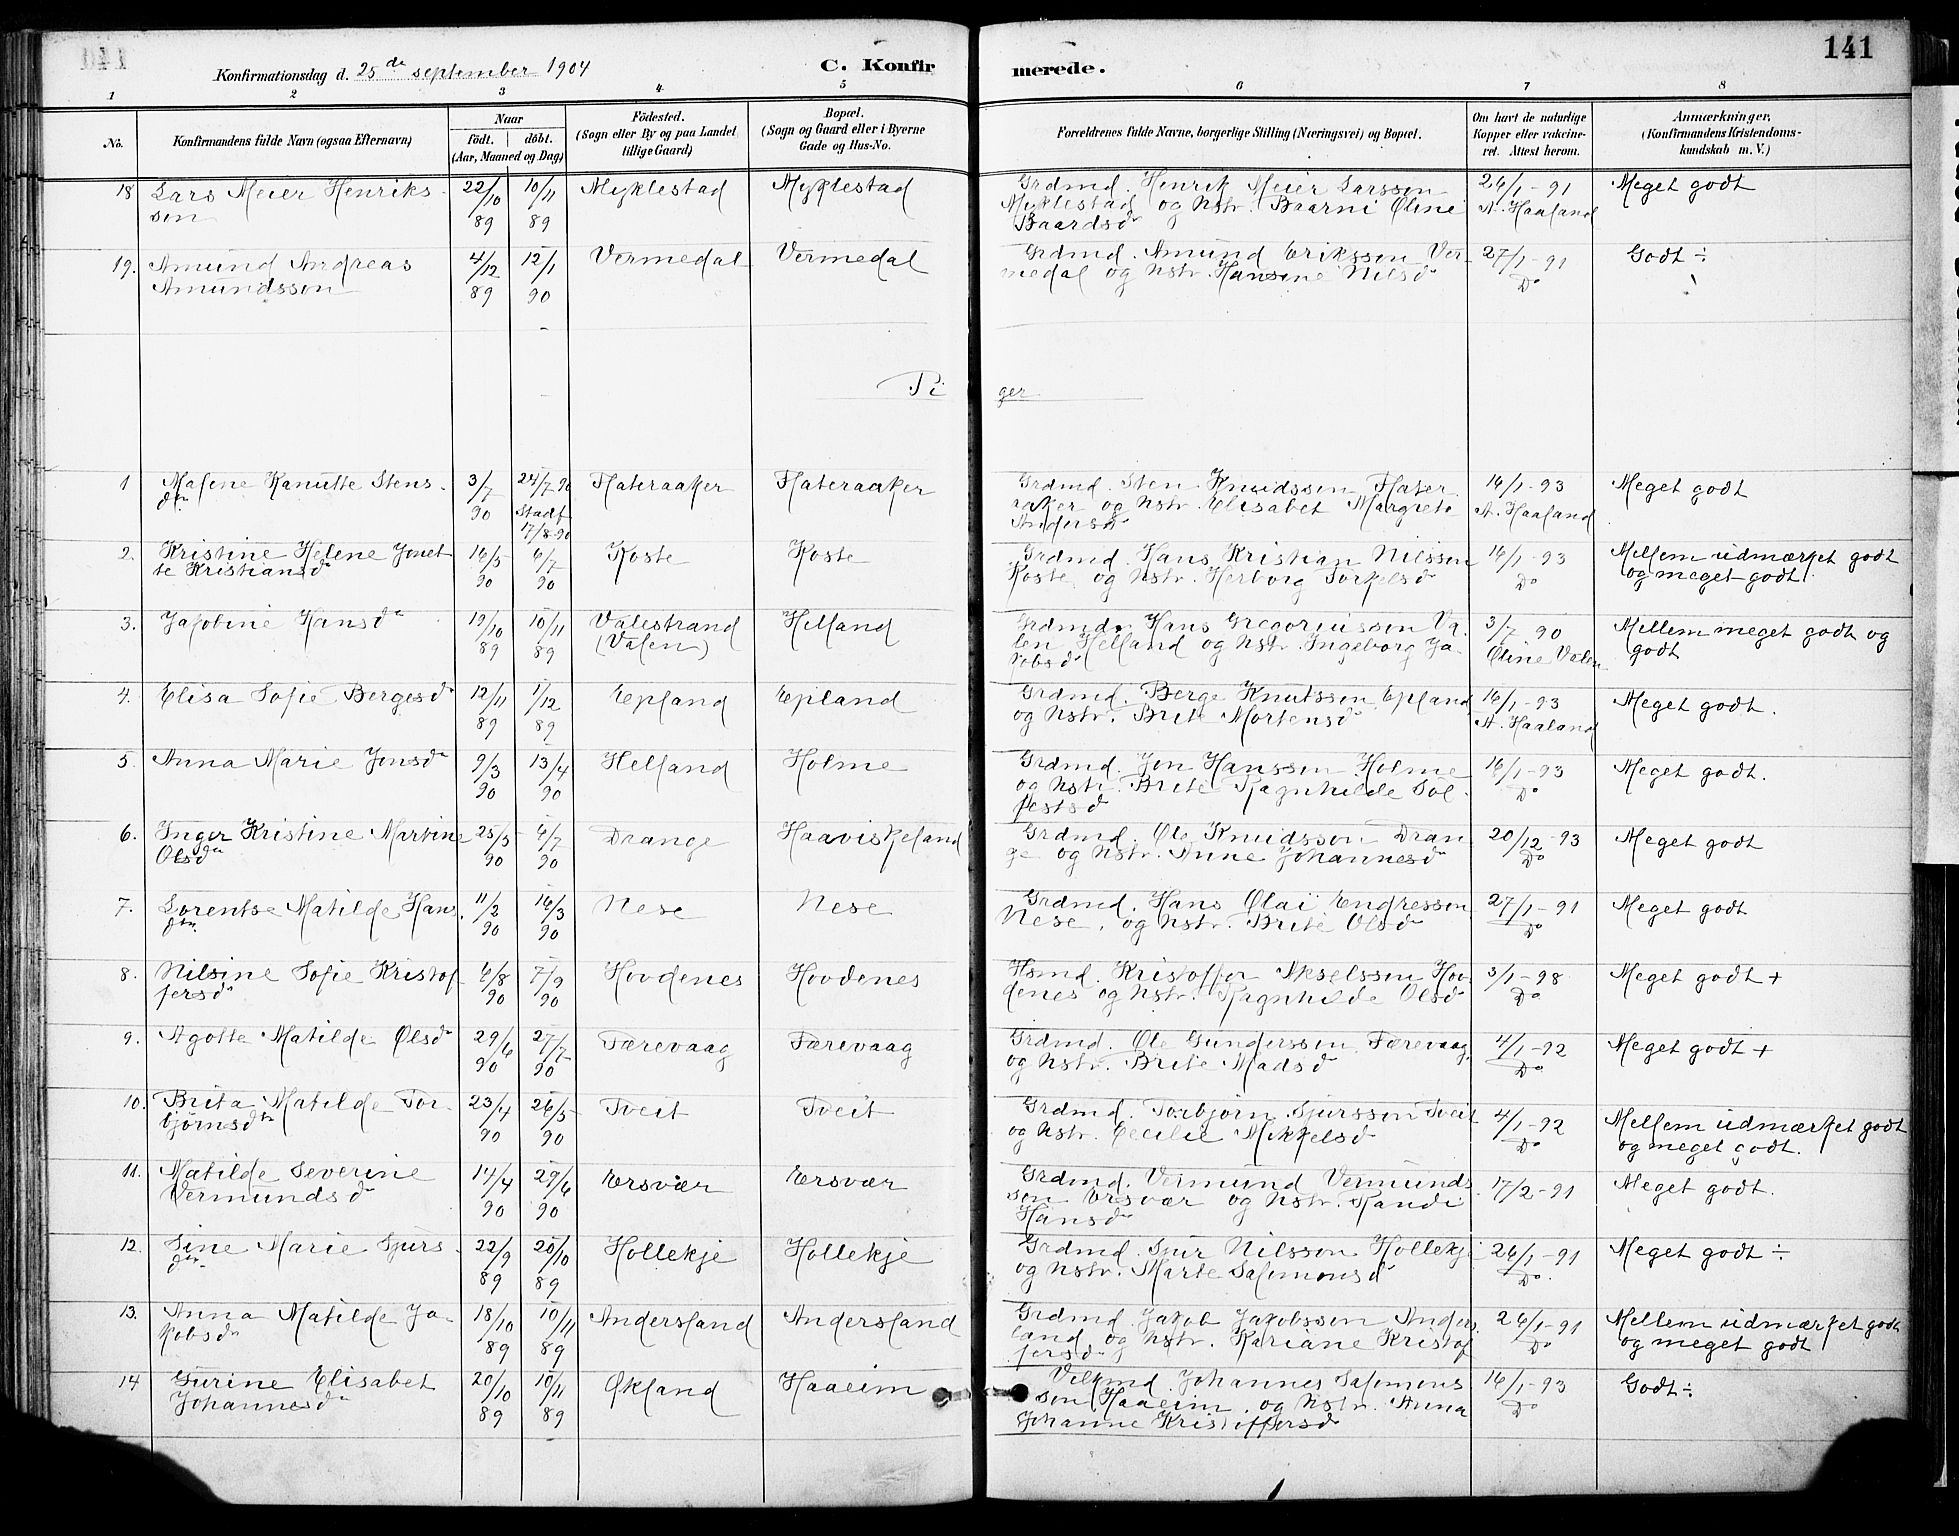 141
Konfirmationsdag d. 25de september 1904
C. Konfirmerede.
1 2 3 4 5 6 7 8
No.
Konfirmandens fulde Navn (ogsaa Efternavn)
Naar
födt. döbt.
(Aar, Maaned og Dag)
Födested.
(Sogn eller By og paa Landet
tillige Gaard)
Bopæl.
(Sogn og Gaard eller i Byerne
Gade og Hus-No.
Forældrenes fulde Navne, borgerlige Stilling (Næringsvei) og Bopæl.
Om havt de naturlige
Kopper eller vakcine-
ret. Attest herom.
Anmærkninger,
(Konfirmandens Kristendoms-
kundskab m. V.)
18 Lars Meier Henriks- 22/10 10/11 Myklestad Myklestad Grdmd. Henrik Meier Larssen 26/1-91 Meget godt
sen 89 89 Myklestad og Hstr. Baarni Oline A. Haaland
Baardsdr
19. Amund Andreas 4/12 12/1 Vermedal Vermedal Grdmd. Amund Erikssen Ver- 27/1-91 Godt ÷
Amundssen 89 90 medal og Hstr. Hansine Nilsdr Do
Piger
1 Malene Kanutte Stens- 3/7 24/7 90 Flateraaker Flateraaker Grdmd. Sten Knudssen Flater- 16/1-93 Meget godt
dtr. 90 Stadf. aaker og Hstr. Elisabet Margrete A. Haaland
17/8-90 Andersdr
2. Kristine Helene Jonet- 16/5 6/7 Koste Koste Grdmd. Hans Kristian Nilssen 16/1-93 Mellem udmærket godt
te Kristiansdr 90 90 Koste og Hstr. Herborg Torkelsdr Do og meget godt.
3. Jakobine Hansdr 19/10 10/11 Valestrand Helland Grdmd. Hans Gregoriussen Va- 3/7 90 Mellem meget godt og
89 89 (Valen) len Helland og Hstr. Ingeborg Ja- Oline Valen godt
kobsdr
4. Elisa Sofie Bergesdr 12/11 1/12 Epland Epland Grdmd. Berge Knutssen Epland 16/1-93 Meget godt.
89 89 og Hstr. Brite Mortensdr A. Haaland
5. Anna Marie Jonsdr 9/3 13/4 Helland Holme Grdmd. Jon Hanssen Holme 16/1-93 Meget godt.
90 90 og Hstr. Brite Ragnhilde Sol- Do
festsdr
6. Inger Kristine Martine 25/5 6/7 Drange Haaviskeland Grdmd. Ole Knudssen Dran- 20/12-93 Meget godt
Olsdr 90 90 ge og Hstr. Anne Johannesdr Do
7. Lorentse Matilde Hans 11/2 16/3 Nese Nese Grdmd. Hans Olai Endressen 27/1-91 Meget godt
dtr. 90 90 Nese, og Hstr. Brite Olsdr Do
8. Nilsine Sofie Kristof- 6/8 7/9 Hovdenes Hovdenes Hsmd. Kristoffer Akselssen Hov- 3/1-98 Meget godt +
fersdr 90 90 denes og Hstr. Ragnhilde Olsdr Do
9. Agotte Matilde Olsdr 29/6 27/7 Færevaag Færevaag Grdmd. Ole Gunderssen Færevaag 4/1-92 Meget godt +
90 90 og Hstr. Brite Madsdr Do
10. Brita Matilde Tor- 23/4 26/5 Tveit Tveit Grdmd. Torbjørn Sjurssen Tveit 4/1-92 Mellem udmærket godt
bjørnsdtr 90 90 og Hstr. Cecilie Mikkelsdr Do og meget godt.
11. Matilde Severine 14/4 29/6 Ersvær Ersvær Grdmd. Vermund Vermunds- 17/2-91 Meget godt.
Vermundsdr 90 90 sen Ersvær og Hstr. Randi
Hansdr
12. Sine Marie Sjurs- 22/9 20/10 Hollekje Hollekje Grdmd. Sjur Nilssen Hollekje 26/1-91 Meget godt ÷
dtr. 89 89 og Hstr. Marte Salomonsdr Do.
13. Anna Matilde Ja- 18/10 10/11 Andersland Andersland Grdmd. Jakob Jakobssen Anders- 26/1-91 Mellem udmærket godt
kobsdr 89 89 land og Hstr. Kariane Kristof- Do og meget godt
fersdr
14 Gurine Elisabet 20/10 10/11 Økland Haaeim Velkmd. Johannes Salomons- 16/1-93 Godt ÷
Johannesdr 89 89 sen Haaeim, og Hstr. Anna Do
Johanne Kristoffersdr